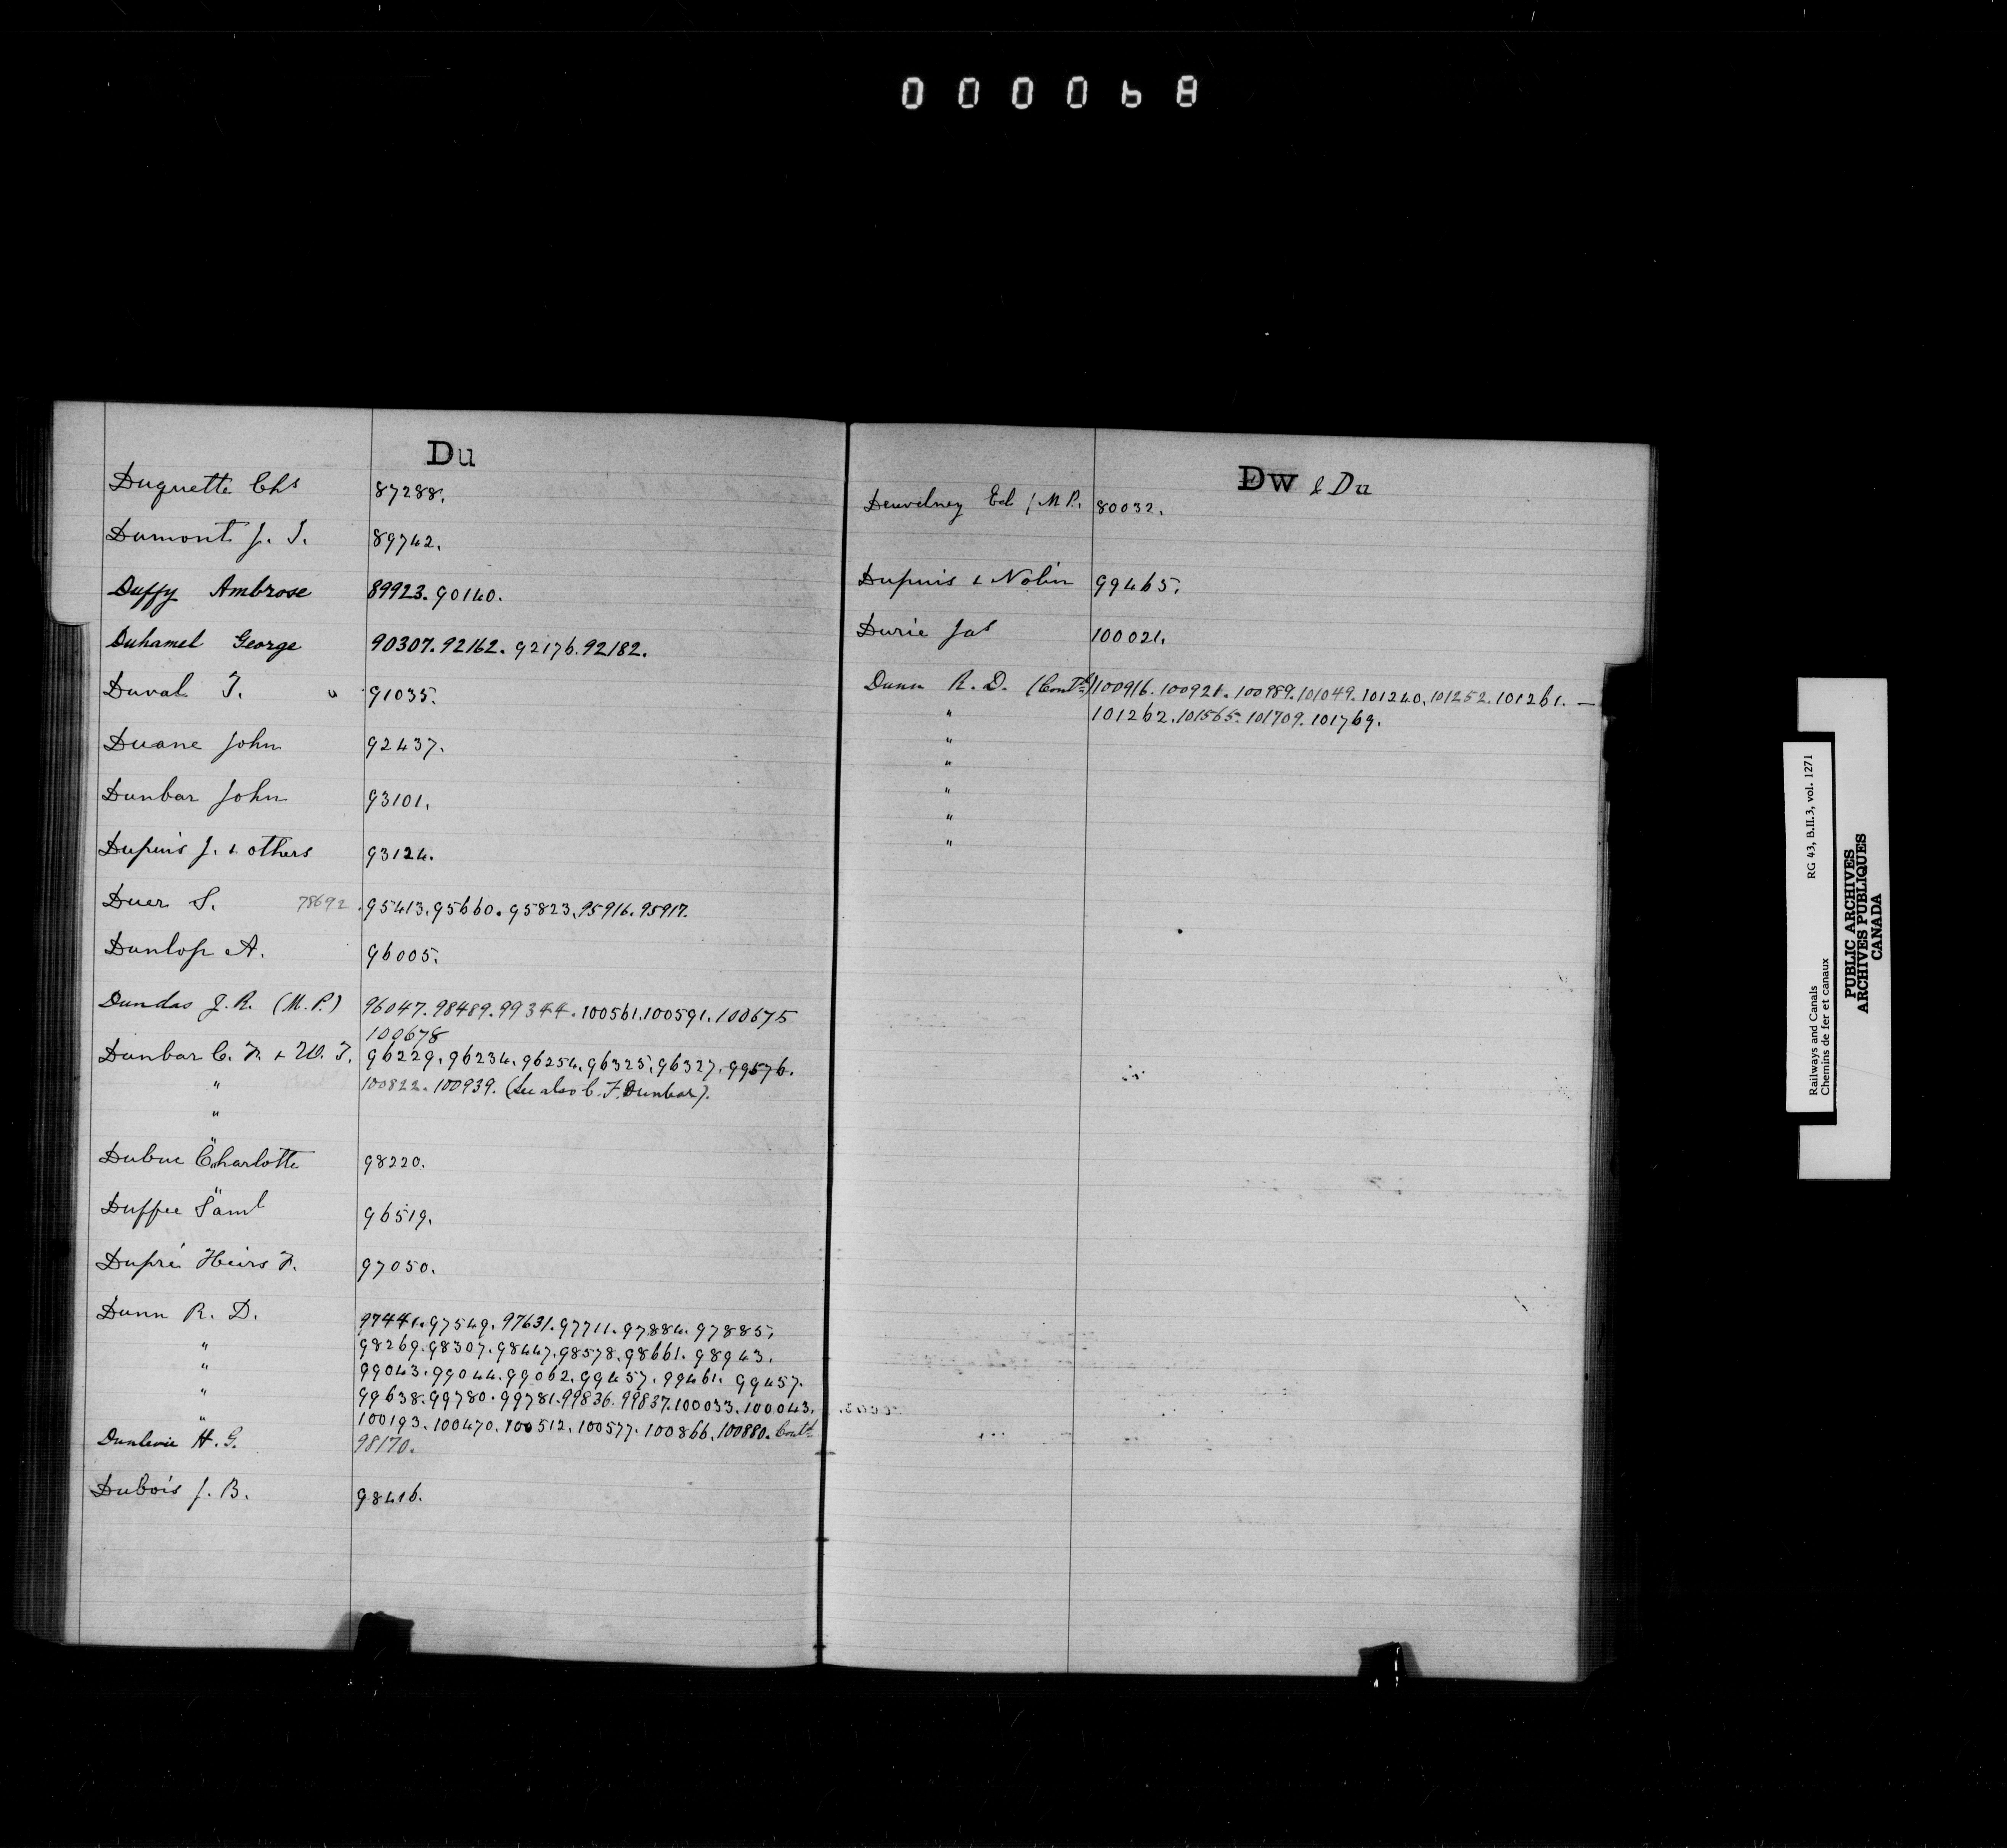 000068
Du
Duquette Chs 87288.
Dumont J. T. 89742.
Duffy Ambrose 89923. 90140.
Duhamel George 90307. 92162. 92176. 92182.
Duval T. 91035.
Duane John 92437.
Dunbar John 93101.
Dupuis J. & others 93124.
Duer S. 78692. 95413. 95660. 95823. 95916. 95917.
Dunlop A. 96005.
Dundas J. R. (M.P.) 96047. 98489. 99344. 100561. 100591. 100675
100678
Dunbar C. F. & W. T. 96229. 96234. 96254. 96325. 96327. 99576.
" 100822. 100939. (See also C. F. Dunbar).
"
"
Dubuc Charlotte 98220.
"
Duffee Saml 96519.
Dupré Heirs F. 97050.
Dunn R. D. 97441. 97549. 97631. 97711. 97884. 97885.
" 98269. 98307. 98447. 98578. 98661. 98943.
" 99043. 99044. 99062. 99457. 99461. 99457.
" 99638. 99780. 99781. 99836. 99837. 100033. 100043.
" 100193. 100470. 100512. 100577. 100866. 100880. Contd
Dunlevie H. G. 98170.
DuBois J. B. 98416.
Dw & Du
Dewdney Ed (M.P. 80032.
Dupuis & Nolin 99465.
Durie Jas 100021.
Dunn R. D. (Contd) 100916. 100921. 100989. 101049. 101240. 101252. 101261. —
" 101262. 101565. 101709. 101769.
"
"
"
"
"
Railways and Canals RG 43, B.II.3, vol. 1271
Chemins de fer et canaux
PUBLIC ARCHIVES
ARCHIVES PUBLIQUES
CANADA